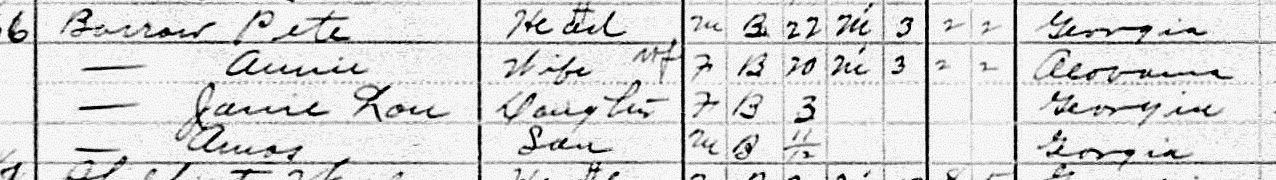 6 Barrow Pete Head M B 22 M 3 2 2 Georgia
— Annie Wife F B 20 M 3 2 2 Alabama
— Janie Lou Daughter F B 3 Georgia
— Amos Son M B 11/12 Georgia